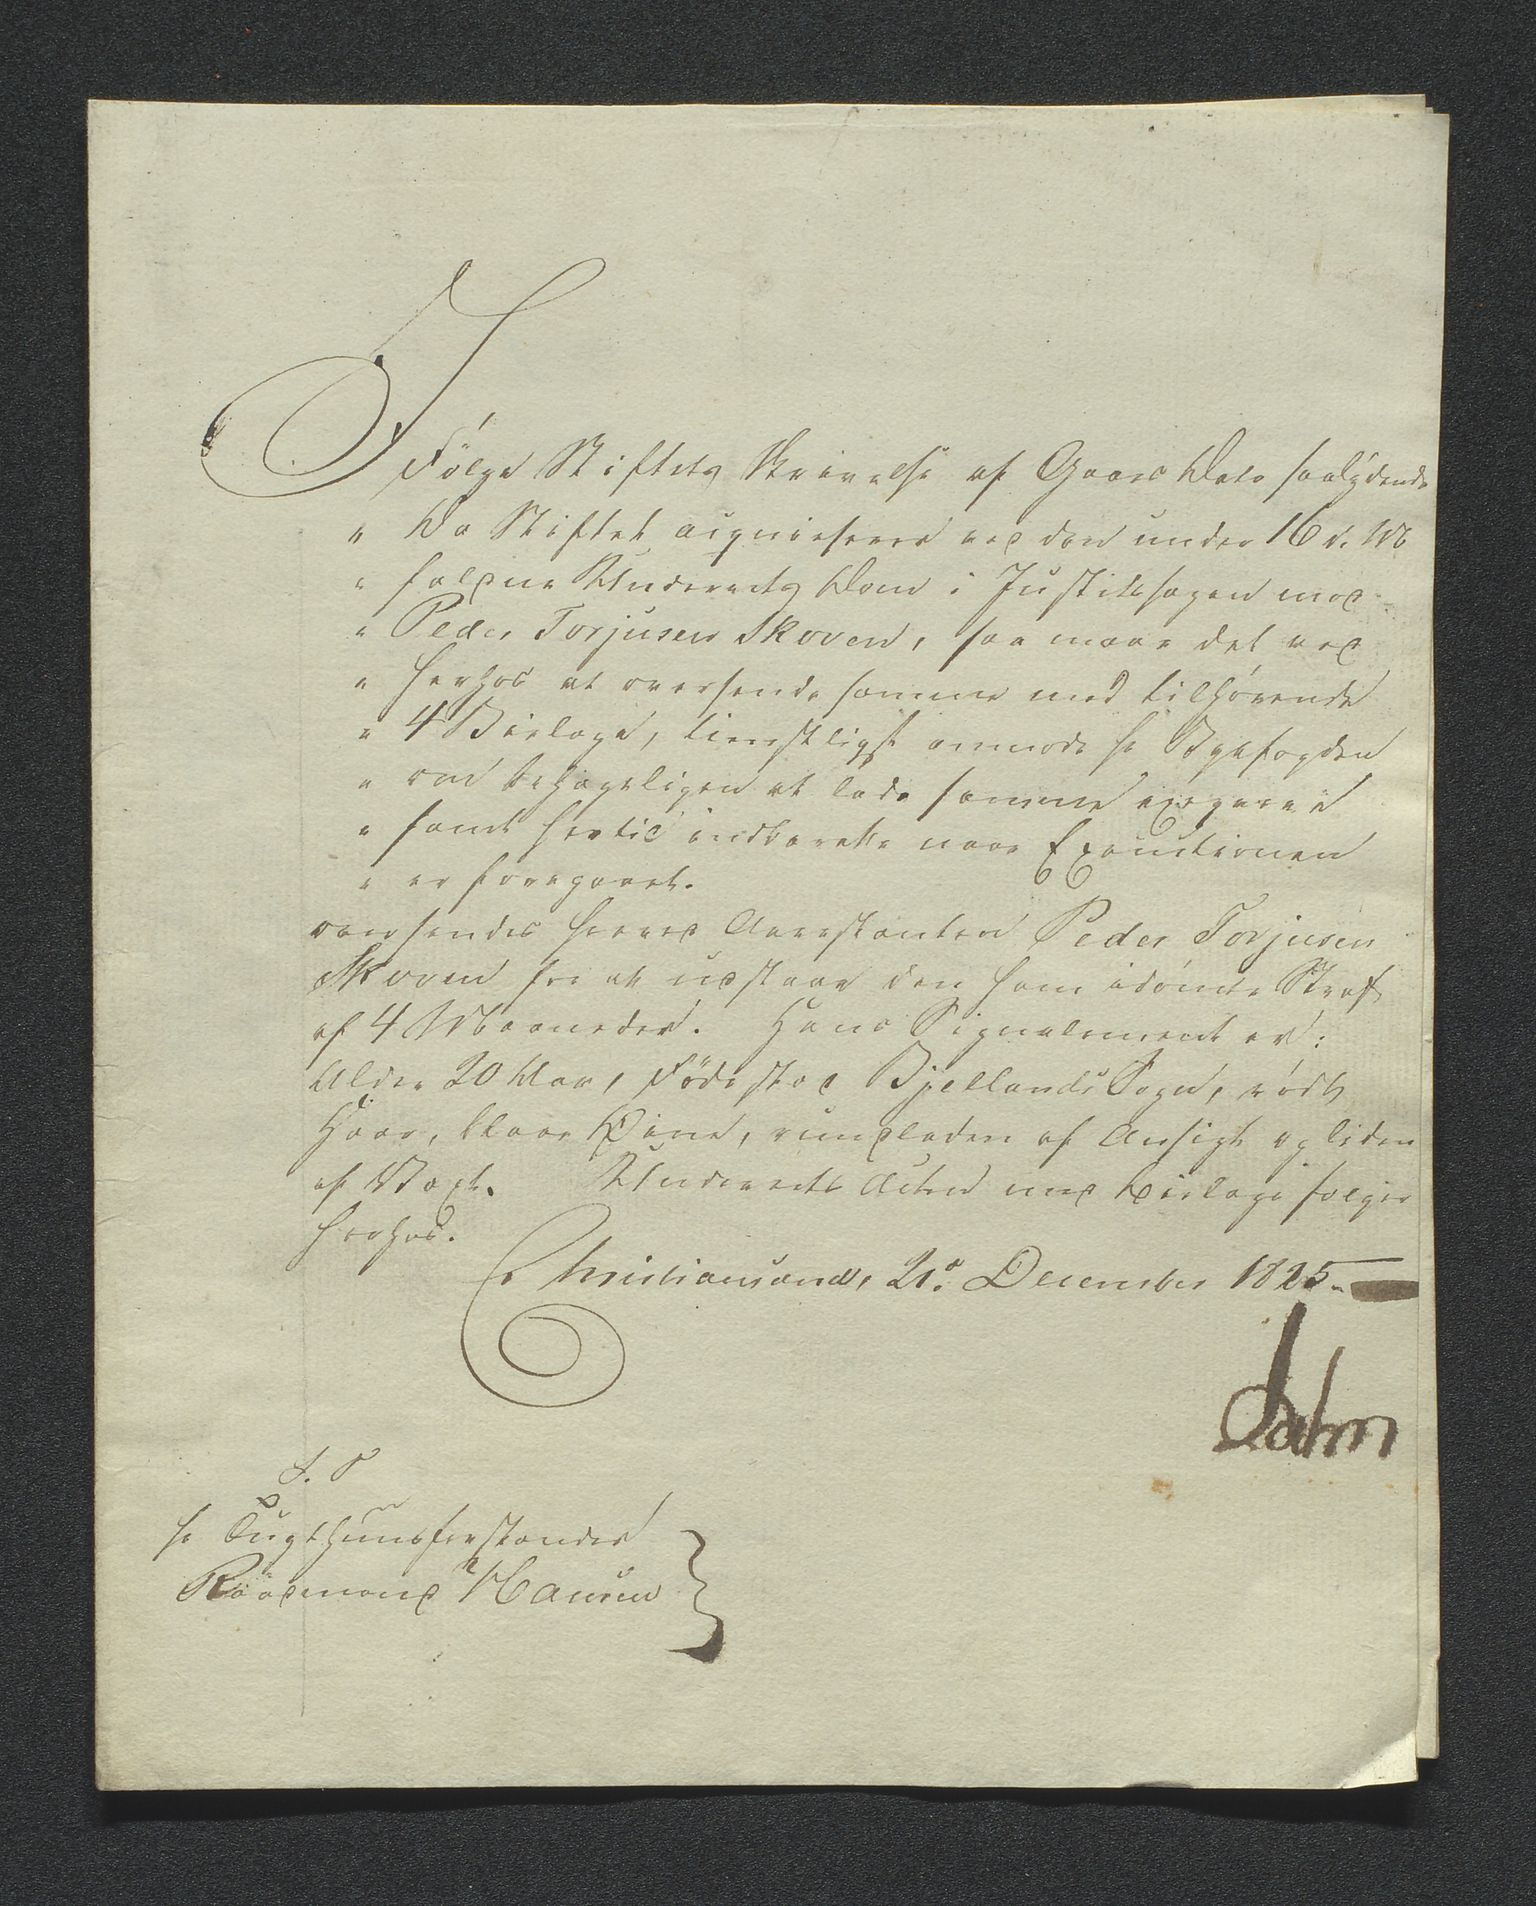 I
Følge Stiftets Skrivelse af Gaars Dato saalydende
" Da Stiftet acqvieserer ved den under 16 d. M
" faldne Underrets Dom i Justitssagen mod
" Peder Torjusen Skoven, saa maae det ved
" herhos at oversende samme med tilhørende
" 4 Bielage, tienstligst anmode Hr Byefogden
" om behageligen at lade samme exeqvere
" samt hertil indberette naar Executionen
" er foregaaet.
oversendes herved Arrestanten Peder Torjusen
Skoven for at udstaae den ham idömte Straf
af 4 Maaneder. Hans Signalement er:
Alder 20 Aar, Fødestad Bjellands Sogn, rødt
Haar, blaae Øine, rundladen af Ansigt og liden
af Vext. Underrets Acten med Bielage følger
herhos.
Christiansand, 21de December 1825
Dahm
S. T.
Hr Tugthuusforstander
Raadmand Hansen